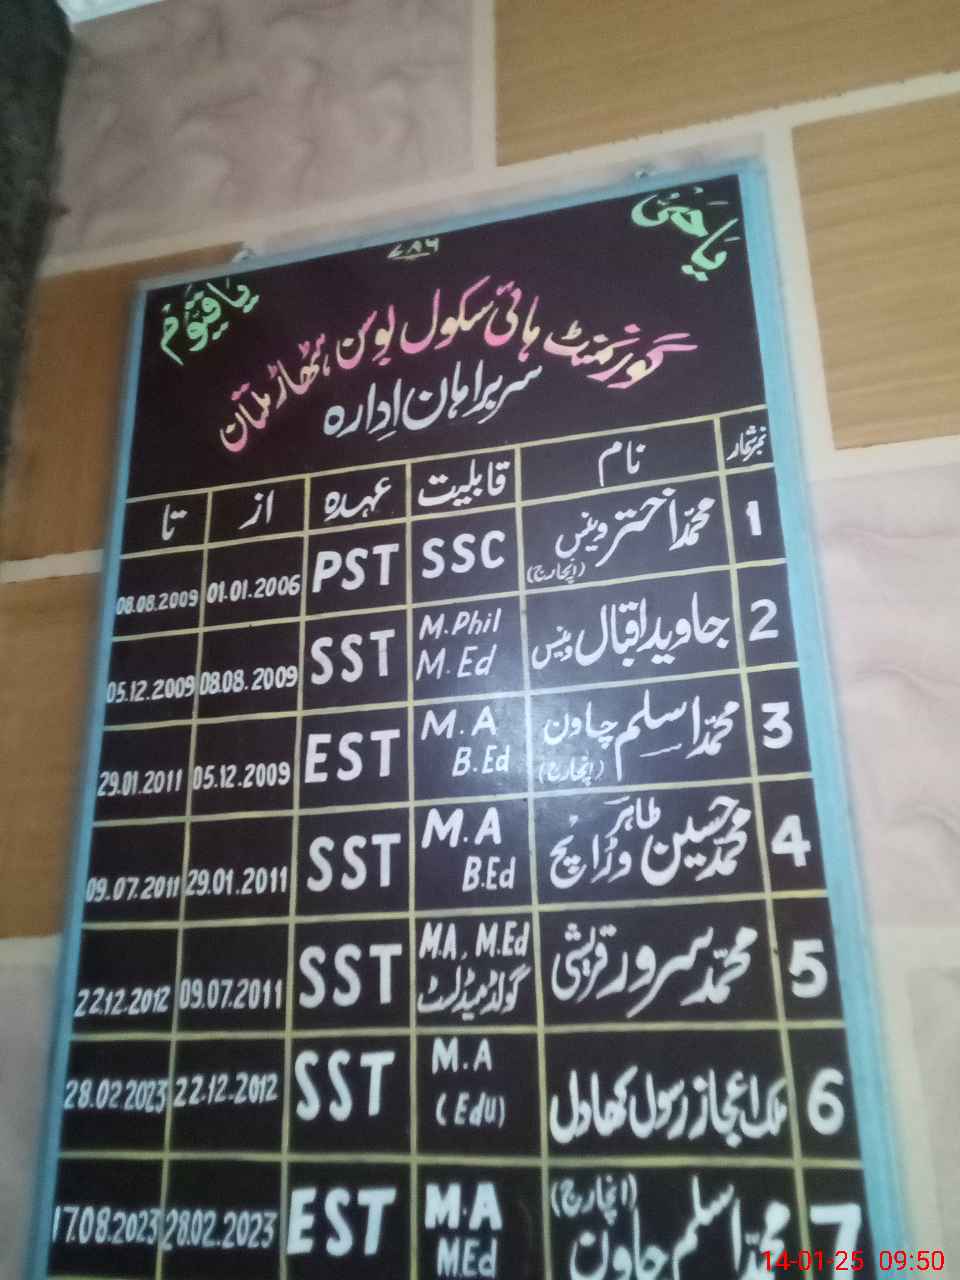 ۷۸۶
یا حیُّ
یا قیّوم
گورنمنٹ ہائی سکول بوسن ہٹھاڑ ملتان
سربراہان اِدارہ
نمبرشمار نام قابلیت عہدہ از تا
1 محمّد اختر وینس (انچارج) SSC PST 01.01.2006 08.08.2009
2 جاوید اقبال وینس M.Phil M.Ed SST 08.08.2009 05.12.2009
3 محمّد اسلم چاون (انچارج) M.A B.Ed EST 05.12.2009 29.01.2011
4 محمّد حسین طاہر وڑائچ M.A B.Ed SST 29.01.2011 09.07.2011
5 محمّد سرور قریشی M.A, M.Ed گولڈ میڈلسٹ SST 09.07.2011 22.12.2012
6 ملک اعجاز رسول کھادل M.A (Edu) SST 22.12.2012 28.02.2023
7 محمّد اسلم چاون (انچارج) M.A MEd EST 28.02.2023 17.08.2023
14-01-25 09:50